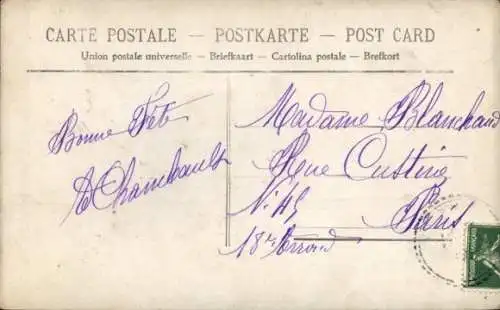 CARTE POSTALE — POSTKARTE — POST CARD
Union postale universelle — Briefkaart — Cartolina postale — Brefkort
Bonne Fête
Chambault
Madame Blanchard
Rue Custine
N° 45
Paris
18e Arrond